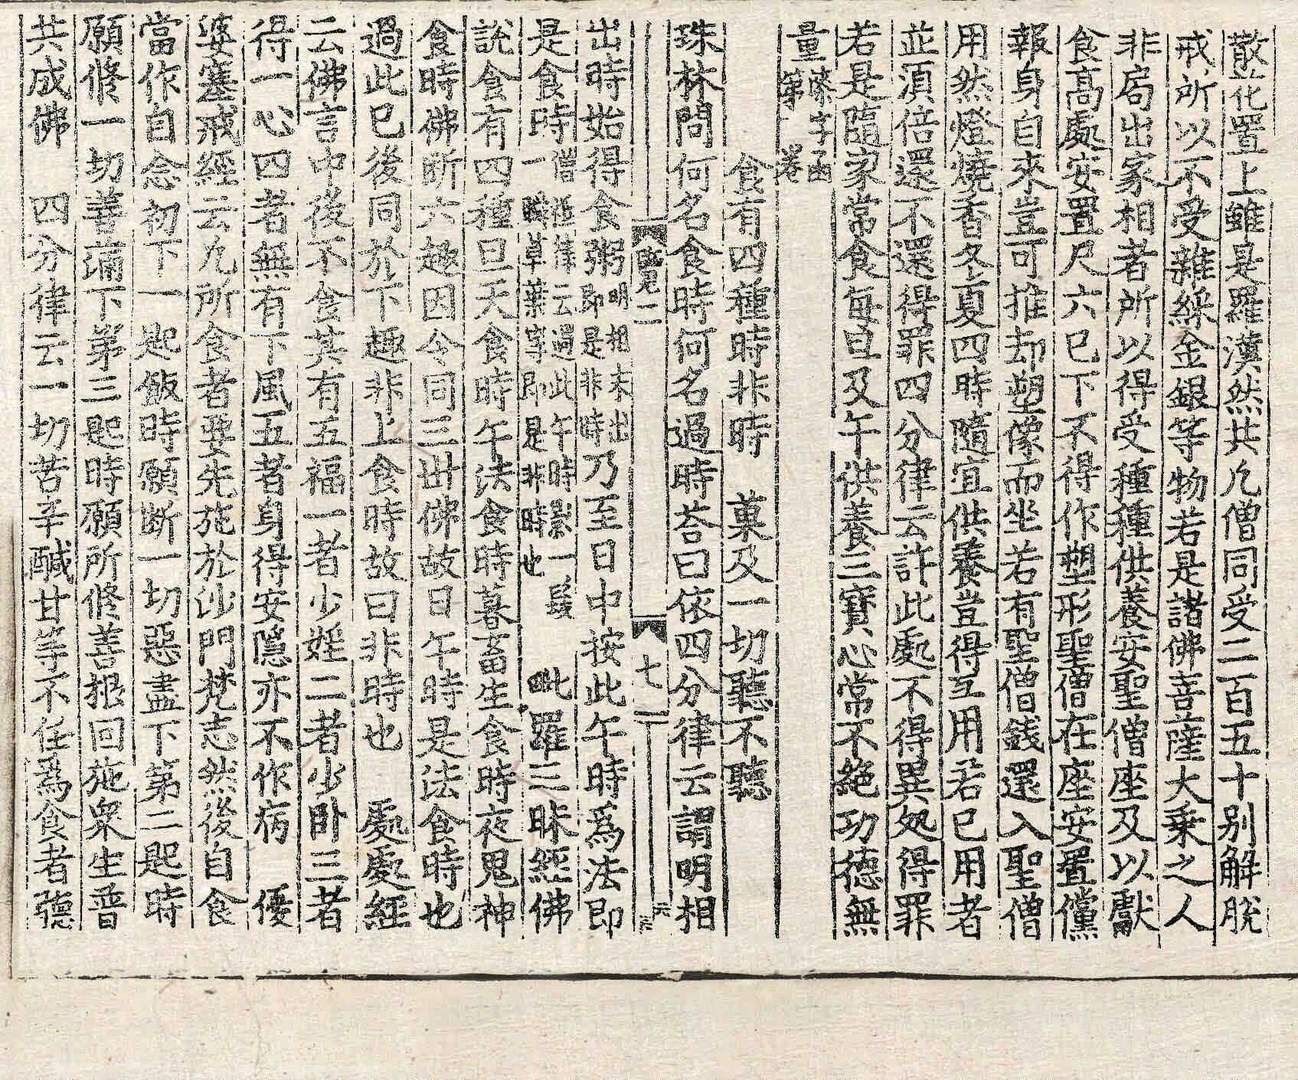 散花置上雖是羅漢然共凡僧同受二百五十别解脫
戒所以不受雜綵金銀等物若是諸佛菩薩大乗之人
非局出家相者所以得受種種供養安聖僧座及以獻
食髙處安置尺六已下不得作塑形聖僧在座安置儻
報身自來豈可推却塑像而坐若有聖僧錢還入聖僧
用然燈燒香冬夏四時隨宜供養豈得互用若已用者
並湏倍還不還得罪四分律云許此處不得異処得罪
若是隨家常食每旦及午供養三寶心常不絕功德無
量 漆字函第 卷
食有四種時非時 菓及一切聽不聽
珠林問何名食時何名過時荅曰依四分律云謂明相
七
出時始得食粥明相未出即是非時乃至日中按此午時爲法即
是食時僧祇律云過此午時影一髮一瞬草葉等即是非時也 毗羅三昧經佛
說食有四種旦天食時午法食時暮畜生食時夜鬼神
食時佛断六趣因令同三世佛故日午時是法食時也
過此已後同於下趣非上食時故曰非時也 處處經
云佛言中後不食其有五福一者少婬二者少卧三者
得一心四者無有下風五者身得安隱亦不作病 優
婆塞戒經云凡所食者要先施於沙門梵志然後自食
當作自念初下一匙飯時願断一切惡盡下第二匙時
願修一切善滿下第三匙時願所修善根回施衆生普
共成佛 四分律云一切苦辛醎甘等不任爲食者聽